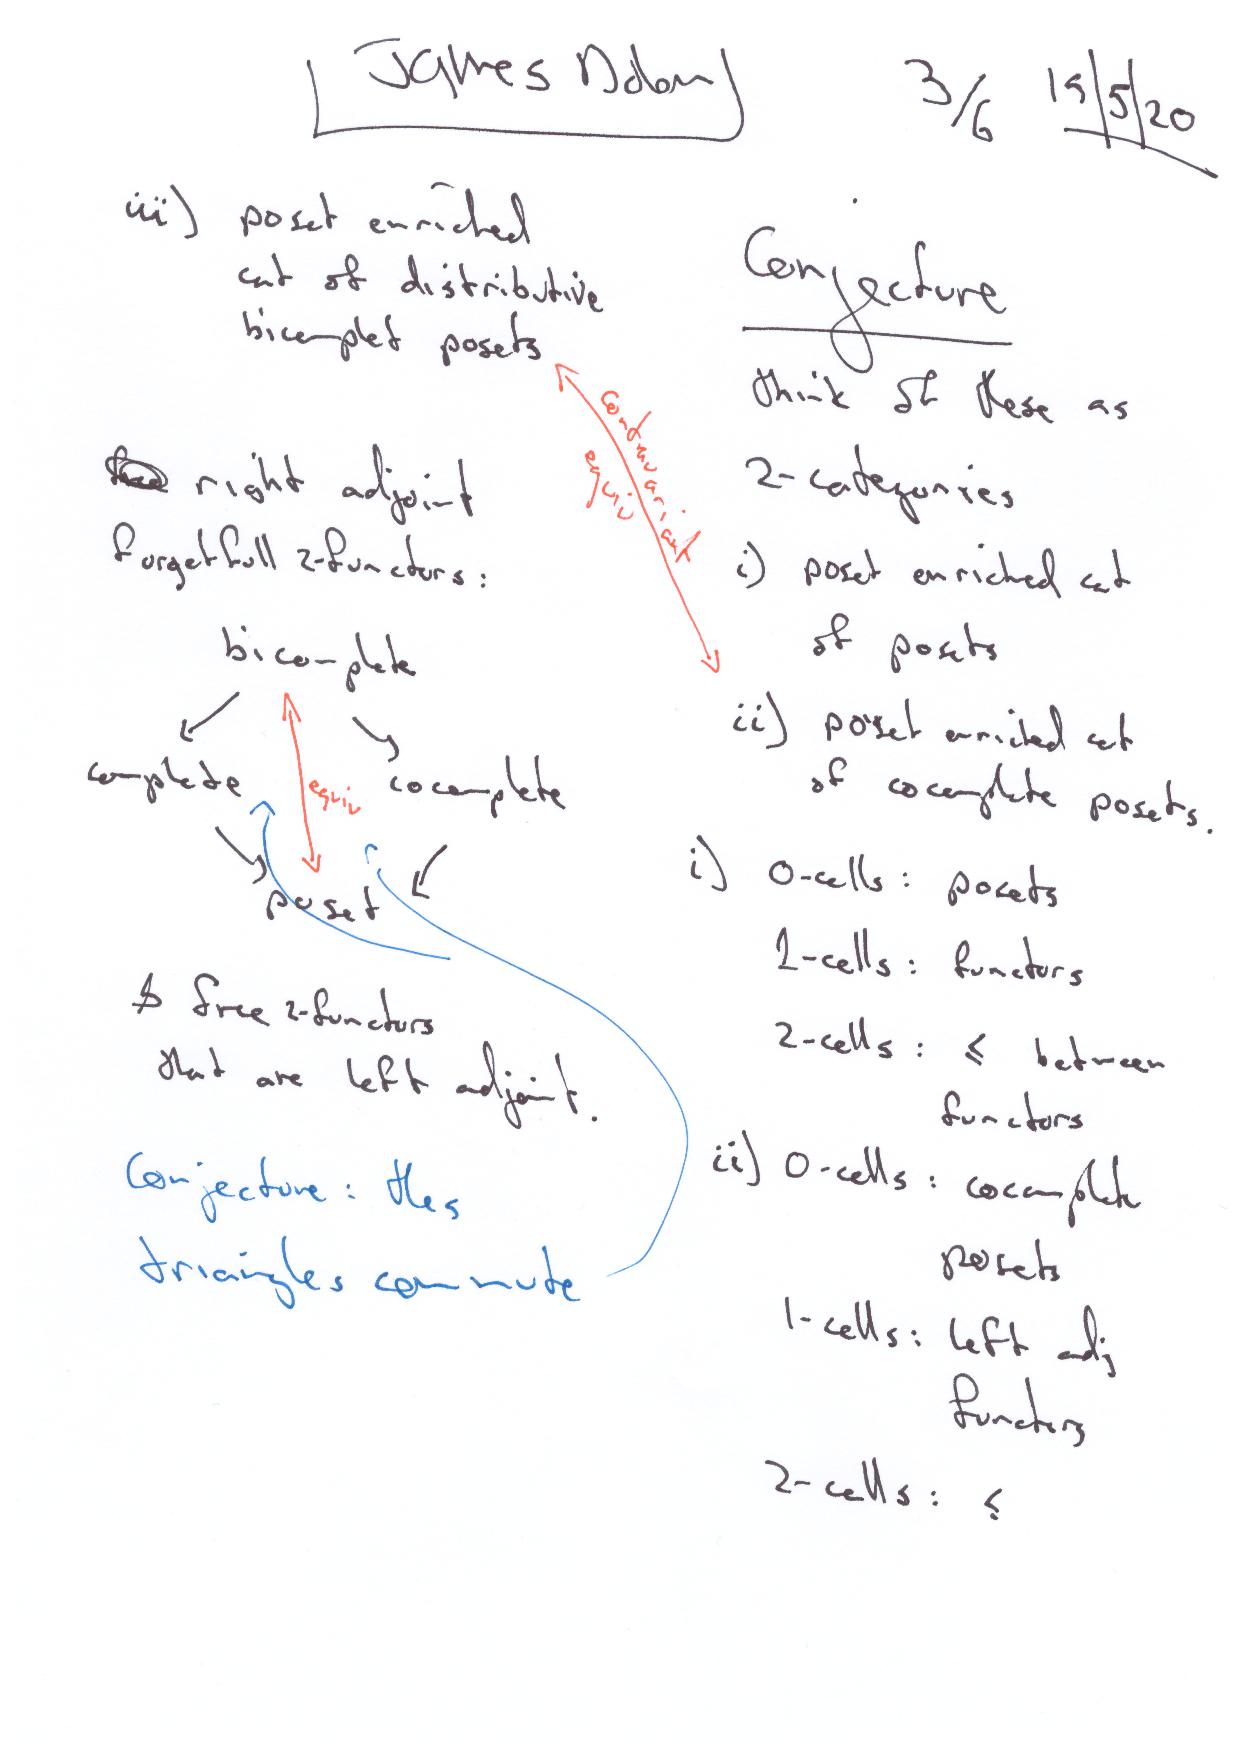 James Dolan
3/6 19/5/20
iii) poset enriched
cat of distributive
bicomplet posets
right adjoint
forgetfull 2-functors:
bicomplete
complete
cocomplete
equiv
poset
& free 2-functors
that are left adjoint.
Conjecture: thes
triangles commute
contravariant
equiv
Conjecture
think of these as
2-categories
i) poset enriched cat
of posets
ii) poset enriched cat
of cocomplete posets.
i) 0-cells: posets
1-cells: functors
2-cells: ≤ between
functors
ii) 0-cells: cocomplete
posets
1-cells: left adj
functors
2-cells: ≤